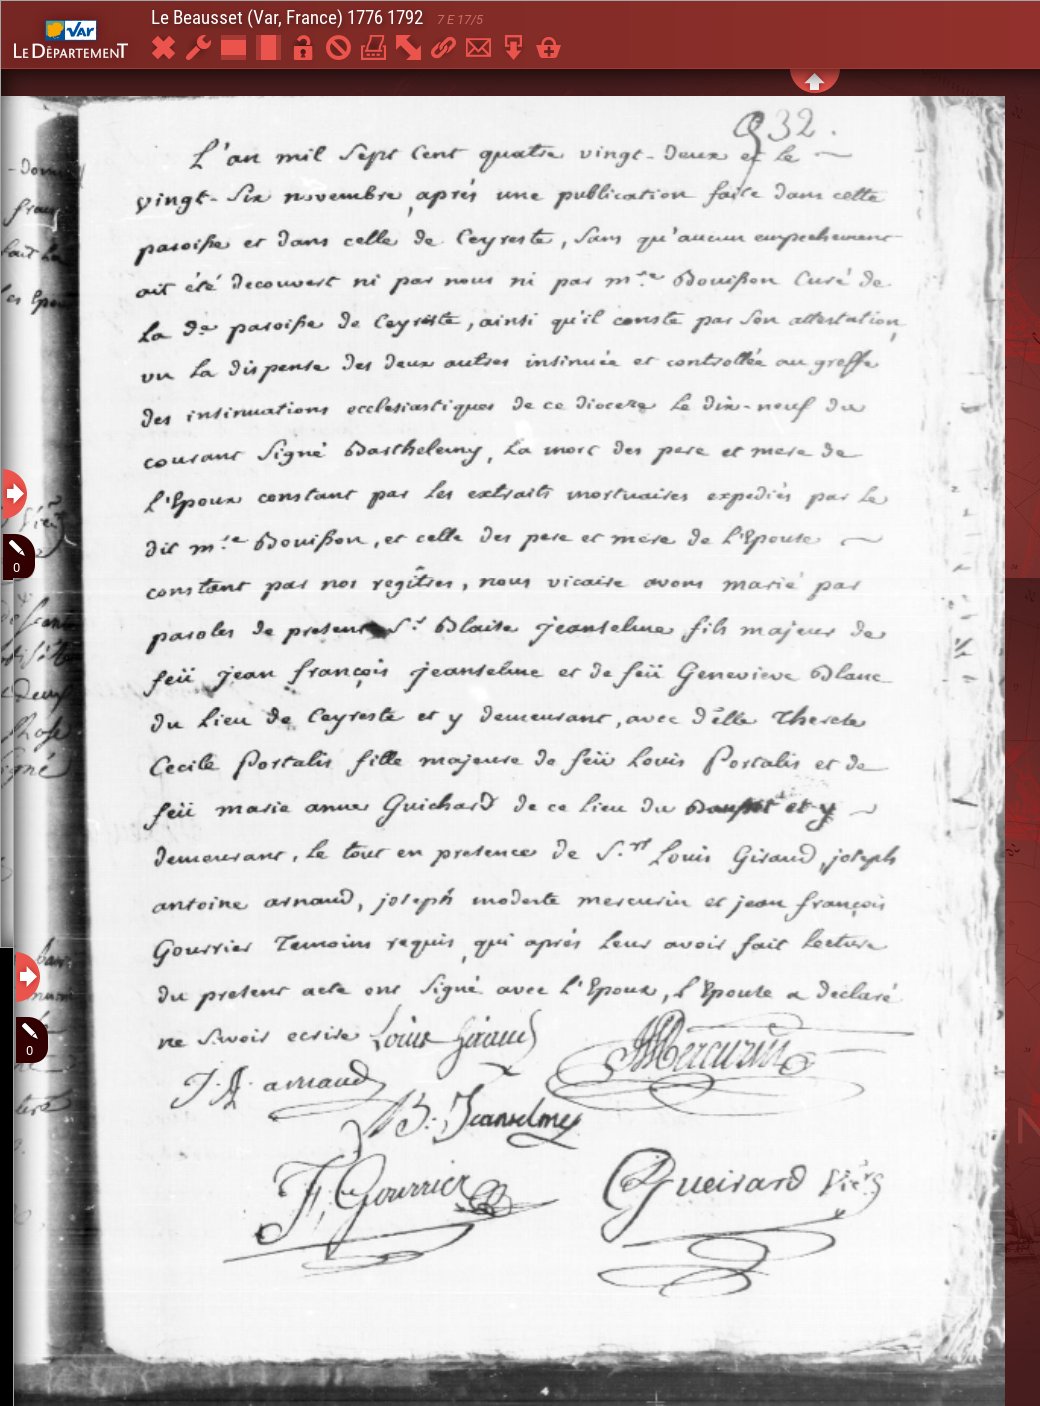 Le Beausset (Var, France) 1776 1792 7 E 17/5
VAR
LE DÉPARTEMENT
932.
L'an mil Sept Cent quatre vingt-deux et le
vingt-Six novembre, aprés une publication faite dans cette
paroisse et dans celle de Ceyreste, Sans qu'aucun empechement
ait été decouvert ni par nous ni par m.re Bouisson Curé de
La d.e paroisse de Ceyreste, ainsi qu'il conste par Son attestation,
vu La dispense des deux autres insinuée et controllée au greffe
des insinuations ecclesiastiques de ce dioceze Le dix-neuf du
courant Signé Barthelemy, La mort des pere et mere de
L'Epoux constant par Les extraits mortuaires expediés par Le
dit m.re Bouisson, et celle des pere et mere de L'Epouse
constant par nos regîtres, nous vicaire avons marié par
paroles de present S.r Blaise jeanselme fils majeur de
feü jean françois jeanselme et de feüe Genevieve Blanc
du Lieu de Ceyreste et y demeurant, avec d.elle Therese
Cecile Portalis fille majeure de feü Louis Portalis et de
feüe marie anne Guichard de ce Lieu du Bausset et y
demeurant, Le tout en presence de S.rs Louis Giraud, joseph
antoine arnaud, joseph modeste mercurin et jean françois
Gourrier Temoins requis, qui aprés Leur avoir fait Lecture
du present acte ont Signé avec L'Epoux, L'Epouse a declaré
ne Sçavoir ecrire Louis Giraud
JMMercurin
J. A. arnaud
B. Jeanselme
JF, Gourrier
Gueirard Vic.re
0
0